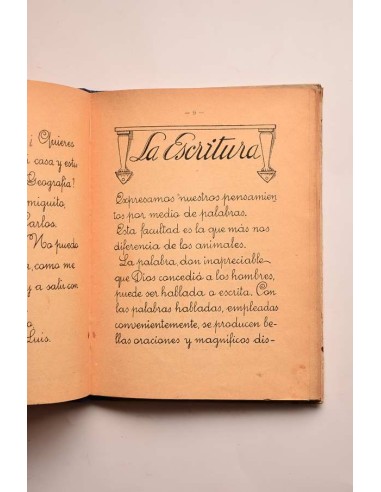 ¿Quieres
casa y estu
Geografía?
miguito,
Carlos.
No puedo
, como me
y a salir con
Luis.
La Escritura
Expresamos nuestros pensamien
tos por medio de palabras.
Esta facultad es la que más nos
diferencia de los animales.
La palabra, don inapreciable
que Dios concedió a los hombres,
puede ser hablada o escrita. Con
las palabras habladas, empleadas
convenientemente, se producen be-
llas oraciones y magníficos dis-